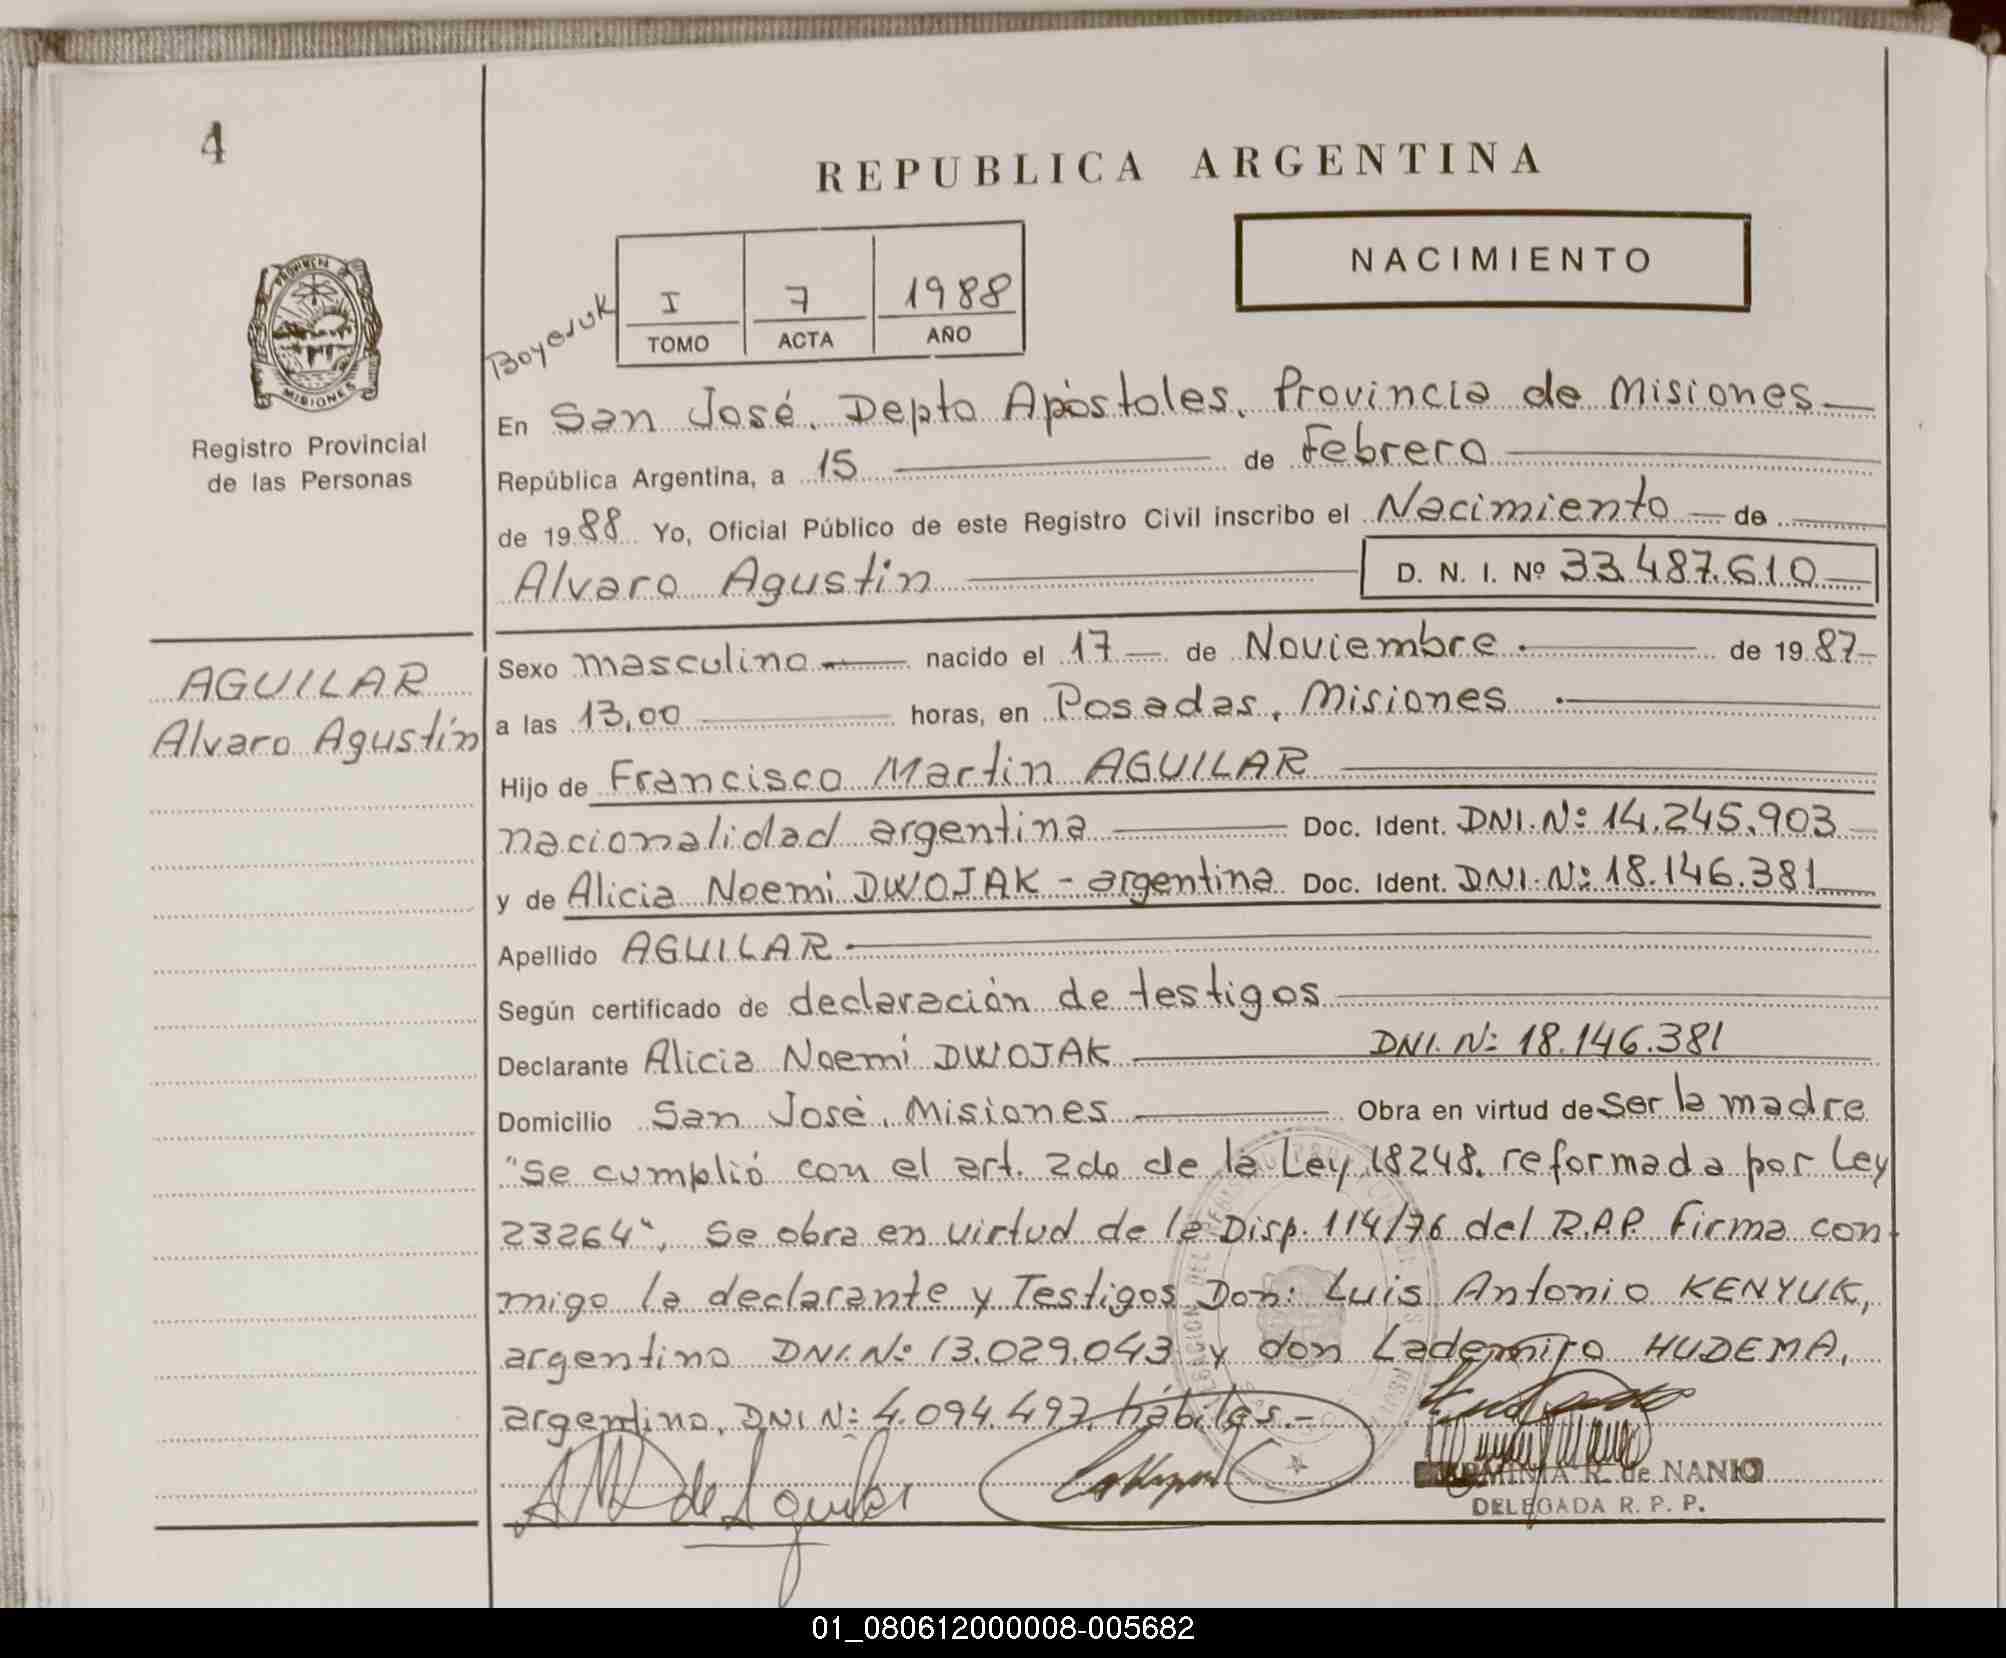 4
REPUBLICA ARGENTINA
NACIMIENTO
I 7 1988
TOMO ACTA AÑO
PROVINCIA
MISIONES
Registro Provincial
de las Personas
En San José, Depto Apóstoles, Provincia de Misiones
República Argentina, a 15 de Febrero
de 1988 Yo, Oficial Público de este Registro Civil inscribo el Nacimiento de
Alvaro Agustín D. N. I. Nº 33.487.610
AGUILAR
Alvaro Agustín
Sexo masculino nacido el 17 de Noviembre de 1987
a las 13,00 horas, en Posadas, Misiones
Hijo de Francisco Martin AGUILAR
nacionalidad argentina Doc. Ident. DNI. Nº 14.245.903
y de Alicia Noemi DWOJAK - argentina Doc. Ident. DNI. Nº 18.146.381
Apellido AGUILAR
Según certificado de declaración de testigos
Declarante Alicia Noemi DWOJAK DNI. Nº 18.146.381
Domicilio San José, Misiones Obra en virtud de ser la madre
"Se cumplió con el art. 2do de la Ley 18248, reformada por Ley
23264". Se obra en virtud de la Disp. 114/76 del R.P.P. Firma con-
migo la declarante y Testigos Don: Luis Antonio KENYUK,
argentino DNI. Nº 13.029.043 y don Lademiro HUDEMA,
argentino, DNI Nº 4.094.497, hábiles.-
R. de NANIO
DELEGADA R. P. P.
01_080612000008-005682